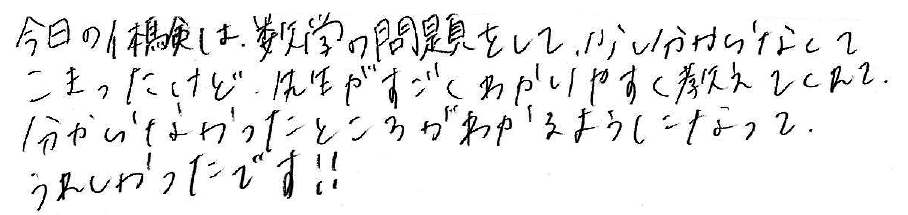 今日の体験は、数学の問題をして、少し分からなくて
こまったけど、先生がすごくわかりやすく教えてくれて、
分からなかったところがわかるようになって、
うれしかったです!!